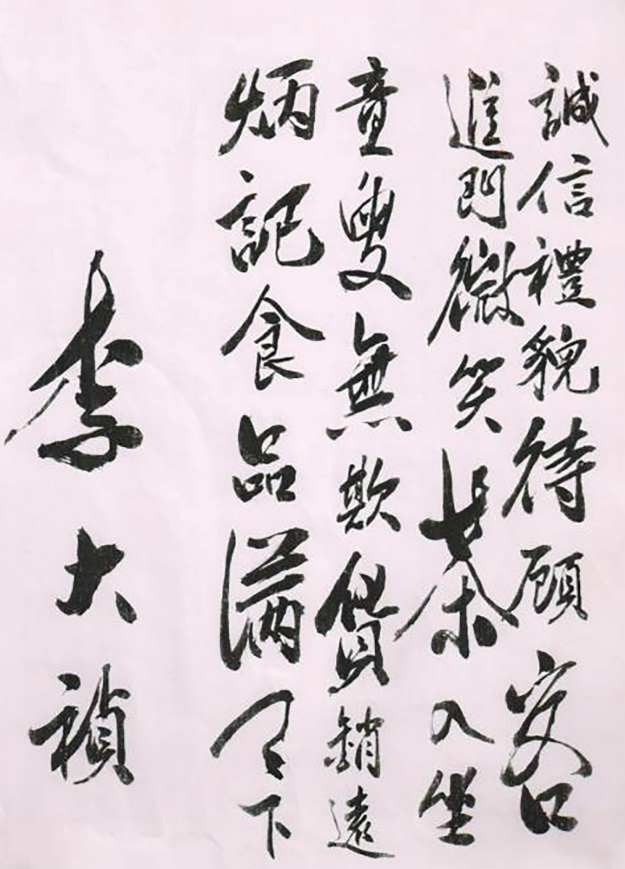 誠信禮貌待顧客
進門微笑茶入坐
童叟無欺貨銷遠
炳記食品滿天下
李大禎